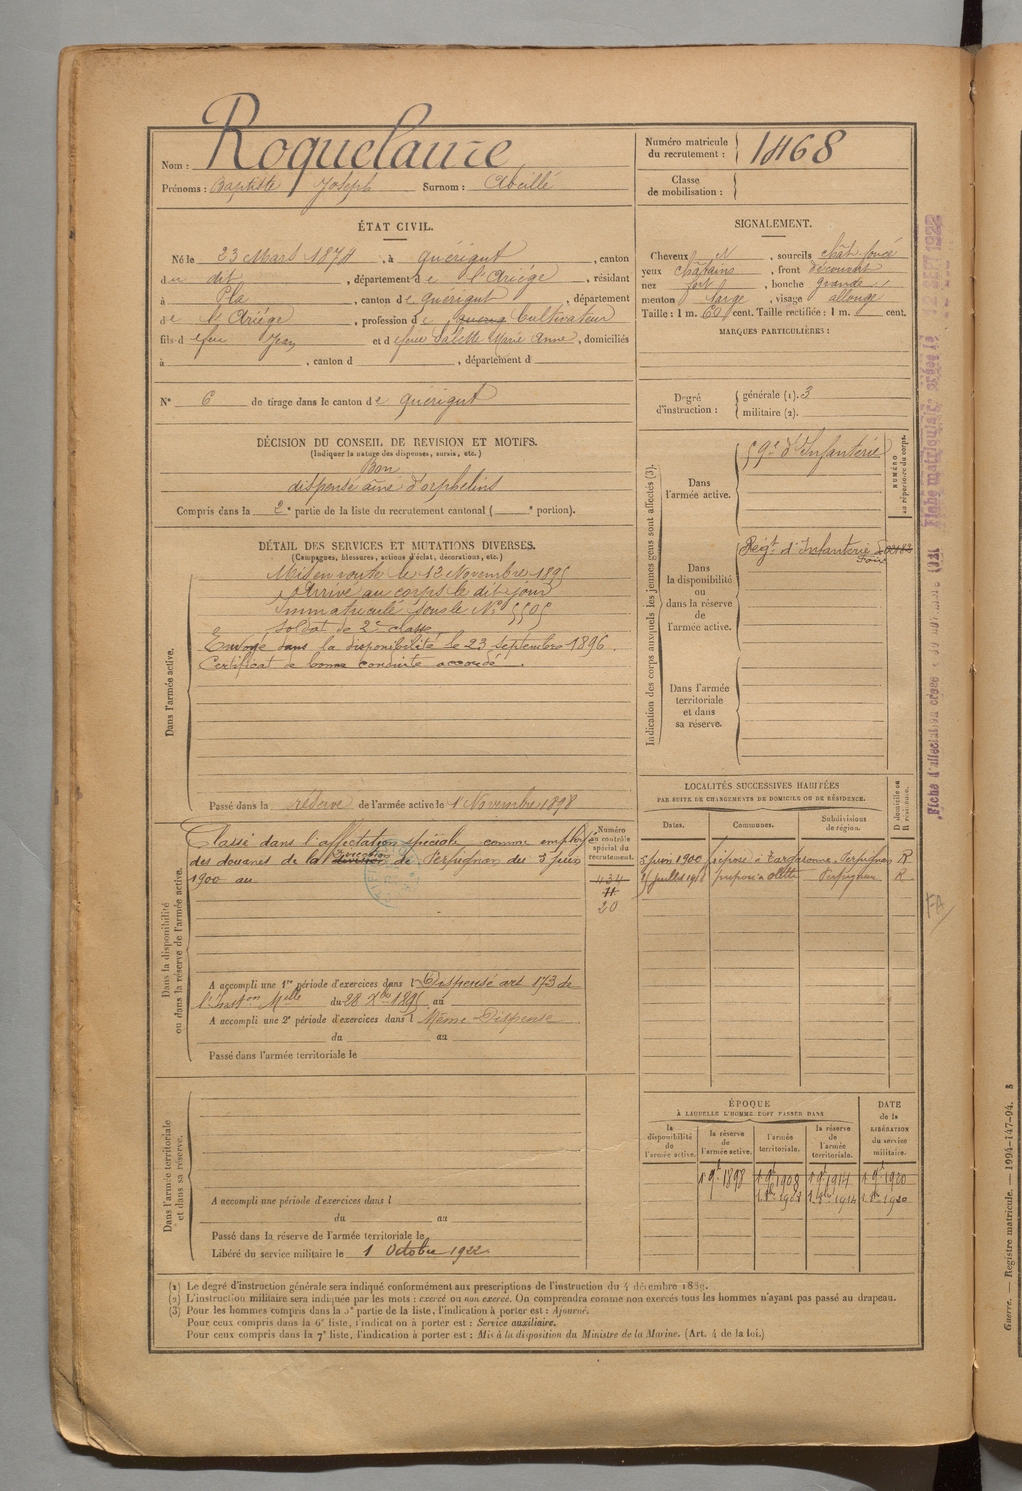 Nom : Roquelaure
Prénoms : Baptiste Joseph Surnom : Abeillé
Numéro matricule du recrutement : 1468
Classe de mobilisation :
ÉTAT CIVIL.
Né le 23 Mars 1874, à Quérigut, canton
du dit, département de l'Ariége, résidant
à Pla, canton de Quérigut, département
de l'Ariége, profession de Cultivateur
fils d feu Jean et d feue Salette Marie Anne, domiciliés
à , canton d , département d
N° 6 de tirage dans le canton de Quérigut
DÉCISION DU CONSEIL DE REVISION ET MOTIFS.
(Indiquer la nature des dispenses, sursis, etc.)
Bon
dispensé aîné d'orphelins
Compris dans la 2e partie de la liste du recrutement cantonal ( e portion).
DÉTAIL DES SERVICES ET MUTATIONS DIVERSES.
(Campagnes, blessures, actions d'éclat, décorations, etc.)
Dans l'armée active.
Mis en route le 12 Novembre 1895
Arrivé au corps le dit jour
Immatriculé sous le N° 5505
Soldat de 2e classe
Envoyé dans la disponibilité le 23 septembre 1896.
Certificat de bonne conduite accordé.
Passé dans la réserve de l'armée active le 1 Novembre 1898
Dans la disponibilité ou dans la réserve de l'armée active.
Numéro au contrôle spécial du recrutement.
Classé dans l'affectation spéciale comme employé
des douanes de la Direction de Perpignan du 5 juin
1900 au
434
71
20
A accompli une 1re période d'exercices dans l Dispensé art 173 de
l'Inston Melle du 28 Xbre 1895 au
A accompli une 2e période d'exercices dans l Même Dispense
du au
Passé dans l'armée territoriale le
Dans l'armée territoriale et dans sa réserve.
A accompli une période d'exercices dans l
du au
Passé dans la réserve de l'armée territoriale le
Libéré du service militaire le 1 Octobre 1922
SIGNALEMENT.
Cheveux N, sourcils chât foncé
yeux châtains, front découvert
nez fort, bouche grande
menton large, visage allongé
Taille : 1 m. 60 cent. Taille rectifiée : 1 m. cent.
MARQUES PARTICULIÈRES :
Degré d'instruction :
générale (1). 3
militaire (2).
Indication des corps auxquels les jeunes gens sont affectés (3).
NUMÉRO au répertoire du corps.
Dans l'armée active.
59e d'Infanterie
Dans la disponibilité ou dans la réserve de l'armée active.
Régt d'Infanterie
Foix
Dans l'armée territoriale et dans sa réserve.
LOCALITÉS SUCCESSIVES HABITÉES
PAR SUITE DE CHANGEMENTS DE DOMICILE OU DE RÉSIDENCE.
Dates. Communes. Subdivisions de région. D domicile ou R résidence.
5 juin 1900 préposé à Targasonne Perpignan R
juillet préposé à Olette Perpignan R
ÉPOQUE
À LAQUELLE L'HOMME DOIT PASSER DANS
la disponibilité de l'armée active.
la réserve de l'armée active.
l'armée territoriale.
la réserve de l'armée territoriale.
DATE de la LIBÉRATION du service militaire.
1 9bre 1898 1 9bre 1908 1 9bre 1914 1 9bre 1920
1 8bre 1908 1 8bre 1914 1 8bre 1920
(1) Le degré d'instruction générale sera indiqué conformément aux prescriptions de l'instruction du 4 décembre 1889.
(2) L'instruction militaire sera indiquée par les mots : exercé ou non exercé. On comprendra comme non exercés tous les hommes n'ayant pas passé au drapeau.
(3) Pour les hommes compris dans la 5e partie de la liste, l'indication à porter est : Ajourné.
Pour ceux compris dans la 6e liste, l'indication à porter est : Service auxiliaire.
Pour ceux compris dans la 7e liste, l'indication à porter est : Mis à la disposition du Ministre de la Marine. (Art. 4 de la loi.)
Fiche matriculaire créée le 12 SEPT 1922
Fiche d'affectation créée
FA
Guerre. — Registre matricule. — 1994-147-94.